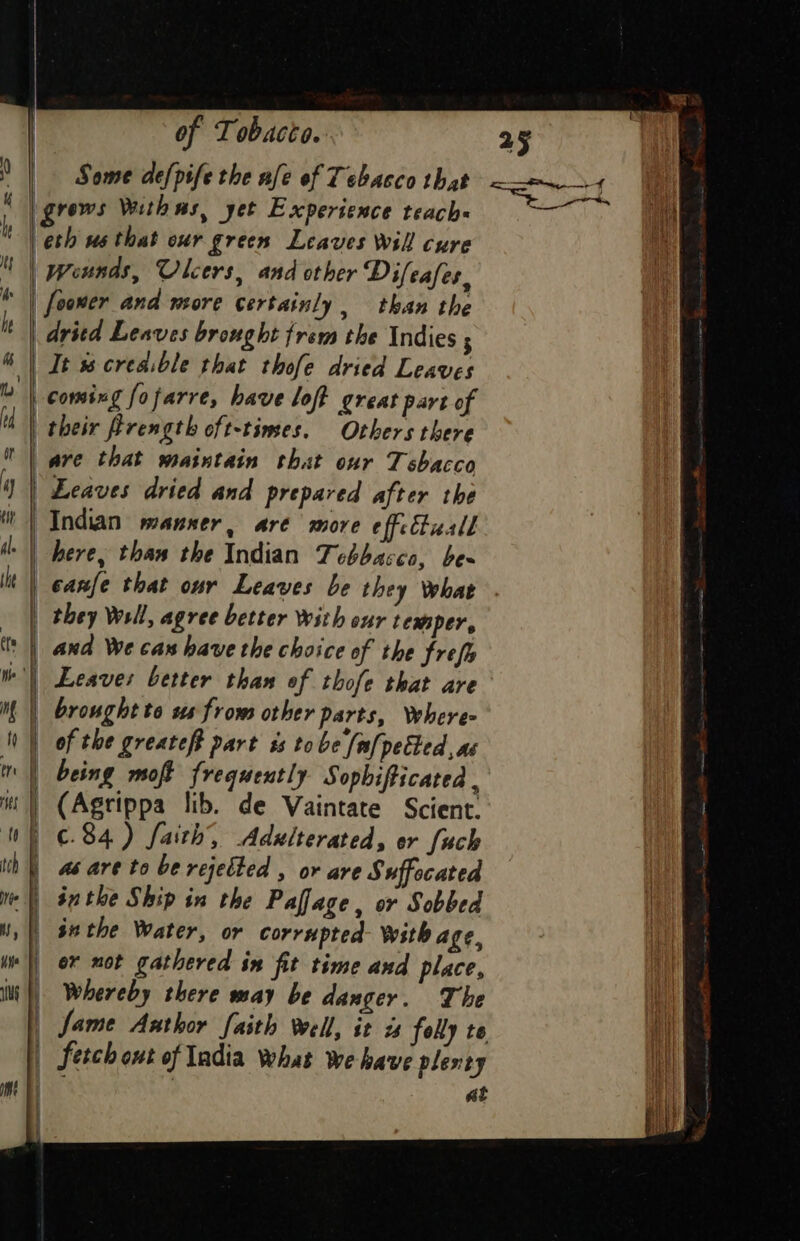 of Tobacco.
25
Some deſpiſe the uſe of Tobacco that
grows With us, yet Experience teach-
eth us that our green Leaves Will cure
Wounds, Ulcers, and other Diſeaſes,
ſooner and more certainly, than the
dried Leaves brought from the Indies;
It is credible that thoſe dried Leaves
coming ſo farre, have loſt great part of
their ſtrength oft-times. Others there
are that maintain that our Tobacco
Leaves dried and prepared after the
Indian manner, are more effectuall
here, than the Indian Tobbacco, be-
cauſe that our Leaves be they What
they Will, agree better With our temper,
and We can have the choice of the freſh
Leaves better than of thoſe that are
brought to us from other parts, Where-
of the greateſt part is to be ſuſpected, as
being moſt frequently Sophiſticated,
(Agrippa lib. de Vaintate Scient.
c. 84.) ſaith, Adulterated, or ſuch
as are to be rejected, or are Suffocated
in the Ship in the Paſſage, or Sobbed
in the Water, or corrupted With age,
or not gathered in fit time and place,
Whereby there may be danger. The
ſame Author ſaith Well, it is folly to
fetch out of India What We have plenty
at